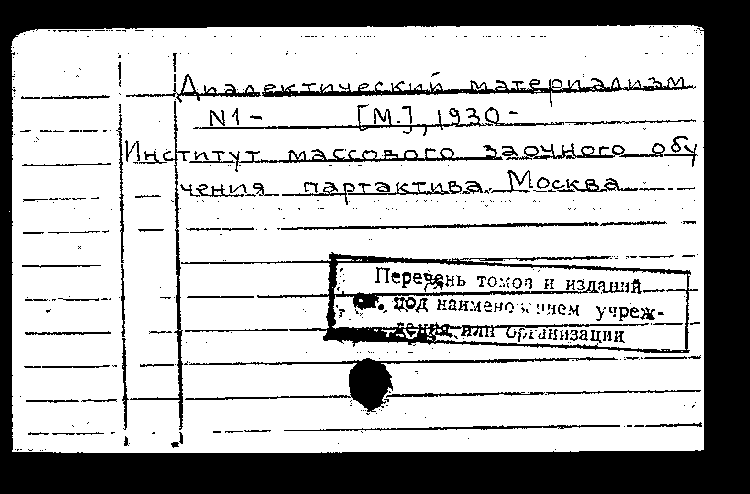 Диалектический материализм
N1- [М.], 1930-
Институт массового заочного обу
чения партактива. Москва
Перечень томов и изданий
см. под наименованием учреж-
дения или организации